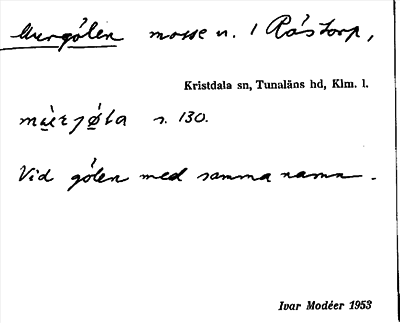 Murgölen mosse n. 1 Råstorp,
Kristdala sn, Tunaläns hd, Klm. l.
s. 130.
Vid gölen med samma namn.
Ivar Modéer 1953